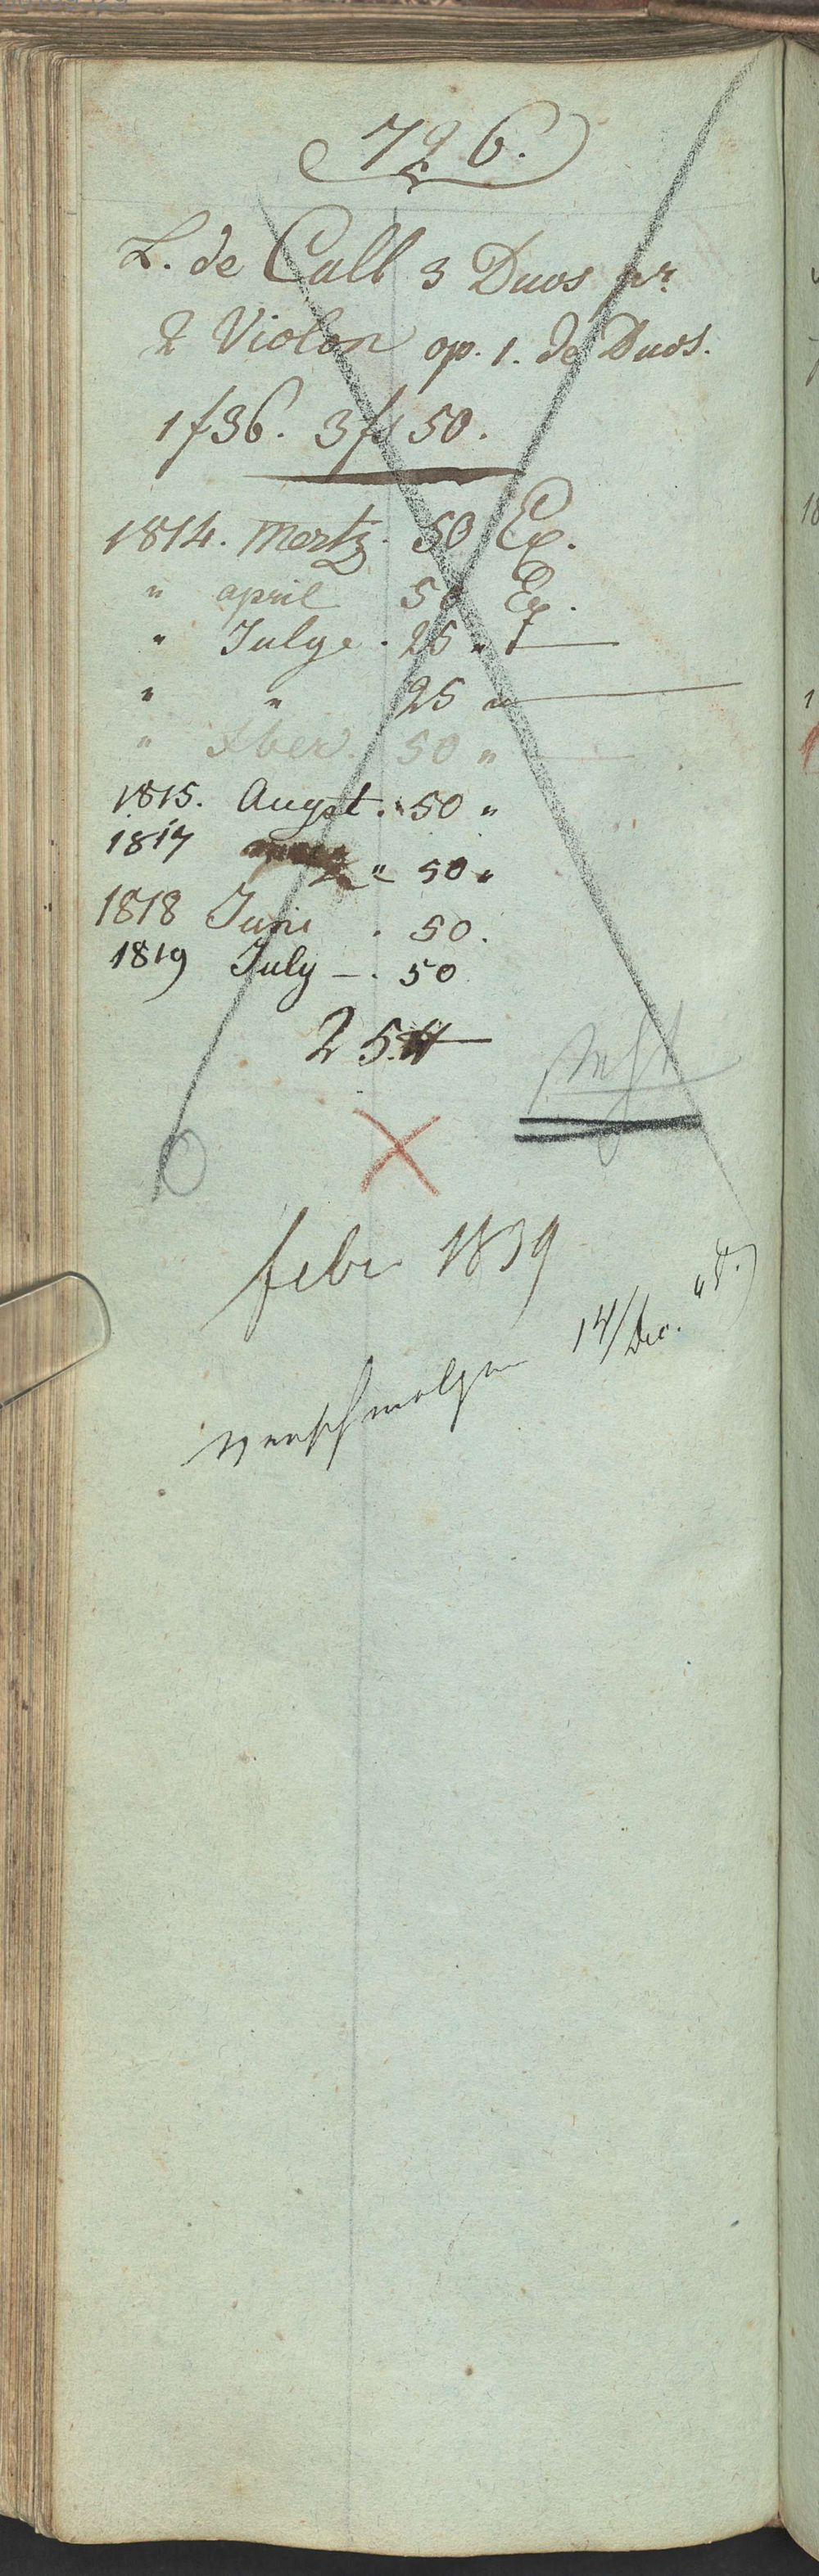 726.
L. de Call 3 Duos pr.
2 Violon op. 1. de Duos.
1 f 36. 3 fs 50.
1814. Mertz. 50 Ex.
" april 50 Ex.
" Julye. 25 "
" " 25 "
" Xber. 50 "
1815. Augst. 50 "
1817 " 50 "
1818 Juni . 50.
1819 July - . 50
25
febr 1839
verschmolzen 14/Dec.